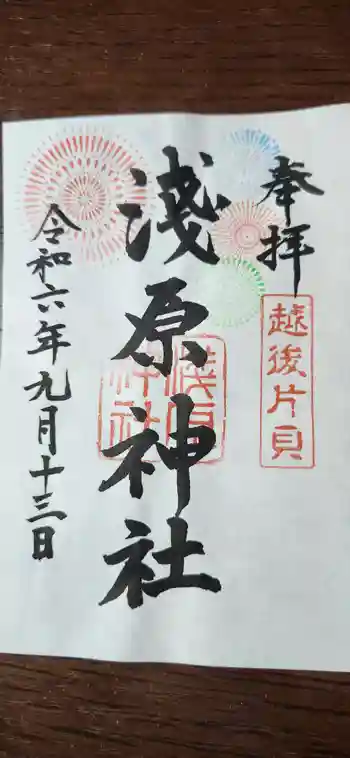 奉拝
越後片貝
淺原神社
淺原神社
令和六年九月十三日